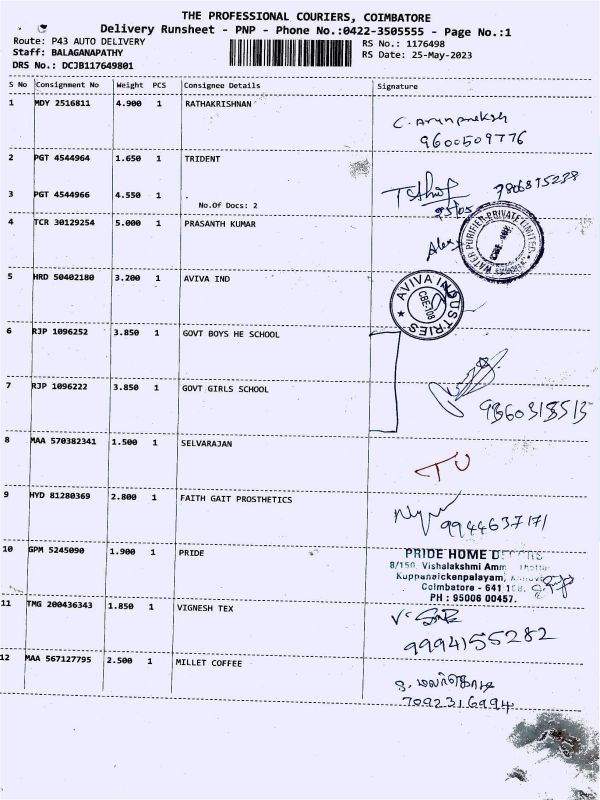 THE PROFESSIONAL COURIERS, COIMBATORE
Delivery Runsheet - PNP - Phone No.:0422-3505555 - Page No.:1
Route: P43 AUTO DELIVERY
RS No.: 1176498
Staff: BALAGANAPATHY
RS Date: 25-May-2023
DRS No.: DCJB117649801
S No Consignment No Weight PCS Consignee Details Signature
1 MDY 2516811 4.900 1 RATHAKRISHNAN
9600509776
2 PGT 4544964 1.650 1 TRIDENT
3 PGT 4544966 4.550 1
7806875238
25/05
No.Of Docs: 2
4 TCR 30129254 5.000 1 PRASANTH KUMAR
Alex
WATER PURIFIER PRIVATE LIMITED
5 HRD 50402180 3.200 1 AVIVA IND
AVIVA INDUSTRIES
CBE-108
6 RJP 1096252 3.850 1 GOVT BOYS HE SCHOOL
7 RJP 1096222 3.850 1 GOVT GIRLS SCHOOL
9360318513
8 MAA 570382341 1.500 1 SELVARAJAN
9 HYD 81280369 2.800 1 FAITH GAIT PROSTHETICS
9944637171
10 GPM 5245090 1.900 1 PRIDE
PRIDE HOME
8/150, Vishalakshmi Amm
Kuppanaickenpalayam,
Coimbatore - 641
PH : 95006 00457.
11 TMG 200436343 1.850 1 VIGNESH TEX
9994155282
12 MAA 567127795 2.500 1 MILLET COFFEE
7092316994